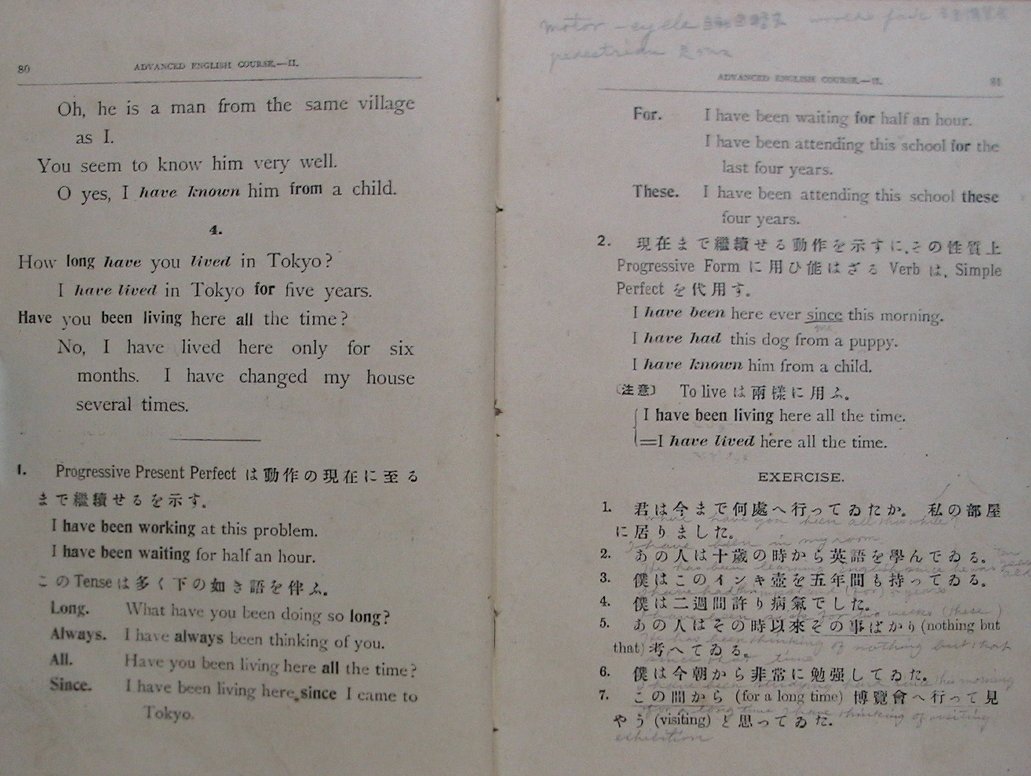 80
ADVANCED ENGLISH COURSE.—II.
Oh, he is a man from the same village
as I.
You seem to know him very well.
O yes, I have known him from a child.
4.
How long have you lived in Tokyo?
I have lived in Tokyo for five years.
Have you been living here all the time?
No, I have lived here only for six
months. I have changed my house
several times.
1. Progressive Present Perfect は動作の現在に至る
まで繼續せるを示す。
I have been working at this problem.
I have been waiting for half an hour.
このTenseは多く下の如き語を伴ふ。
Long. What have you been doing so long?
Always. I have always been thinking of you.
All. Have you been living here all the time?
Since. I have been living here since I came to
Tokyo.
motor-cycle
pedestrian
ADVANCED ENGLISH COURSE.—II. 81
For. I have been waiting for half an hour.
I have been attending this school for the
last four years.
These. I have been attending this school these
four years.
2. 現在まで繼續せる動作を示すに、その性質上
Progressive Form に用ひ能はざる Verb は、Simple
Perfect を代用す。
I have been here ever since this morning.
I have had this dog from a puppy.
I have known him from a child.
〔注意〕 To live は兩樣に用ふ。
I have been living here all the time.
=I have lived here all the time.
EXERCISE.
1. 君は今まで何處へ行ってゐたか。 私の部屋
have you been all this while?
に居りました。
I have been in my room
2. あの人は十歳の時から英語を學んでゐる。
3. 僕はこのインキ壺を五年間も持ってゐる。
4. 僕は二週間許り病氣でした。
5. あの人はその時以來その事ばかり(nothing but
that)考へてゐる。
He has been thinking of nothing but that
since that time
6. 僕は今朝から非常に勉强してゐた。
this morning
7. この間から (for a long time) 博覽會へ行って見
For a long time I have been thinking of visiting
やう (visiting) と思ってゐた.
exhibition